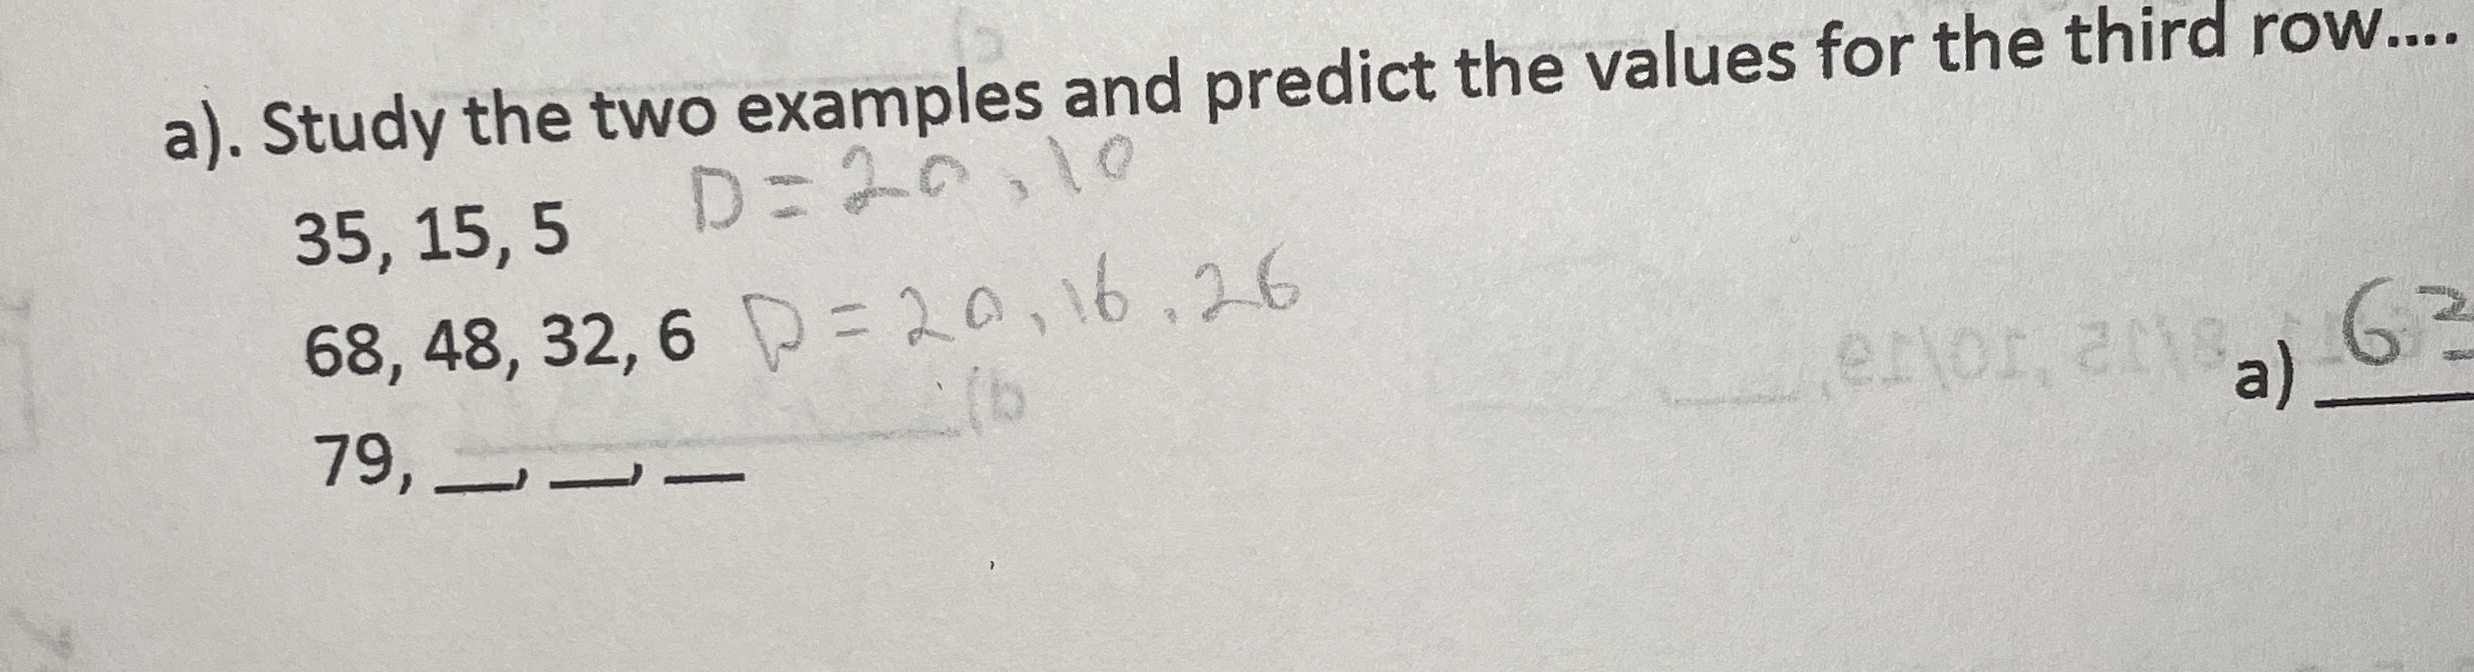 a). Study the two examples and predict the values for the third row....
D = 20, 10
35, 15, 5
68, 48, 32, 6 D = 20, 16, 26
79, __, __, __
a) 63